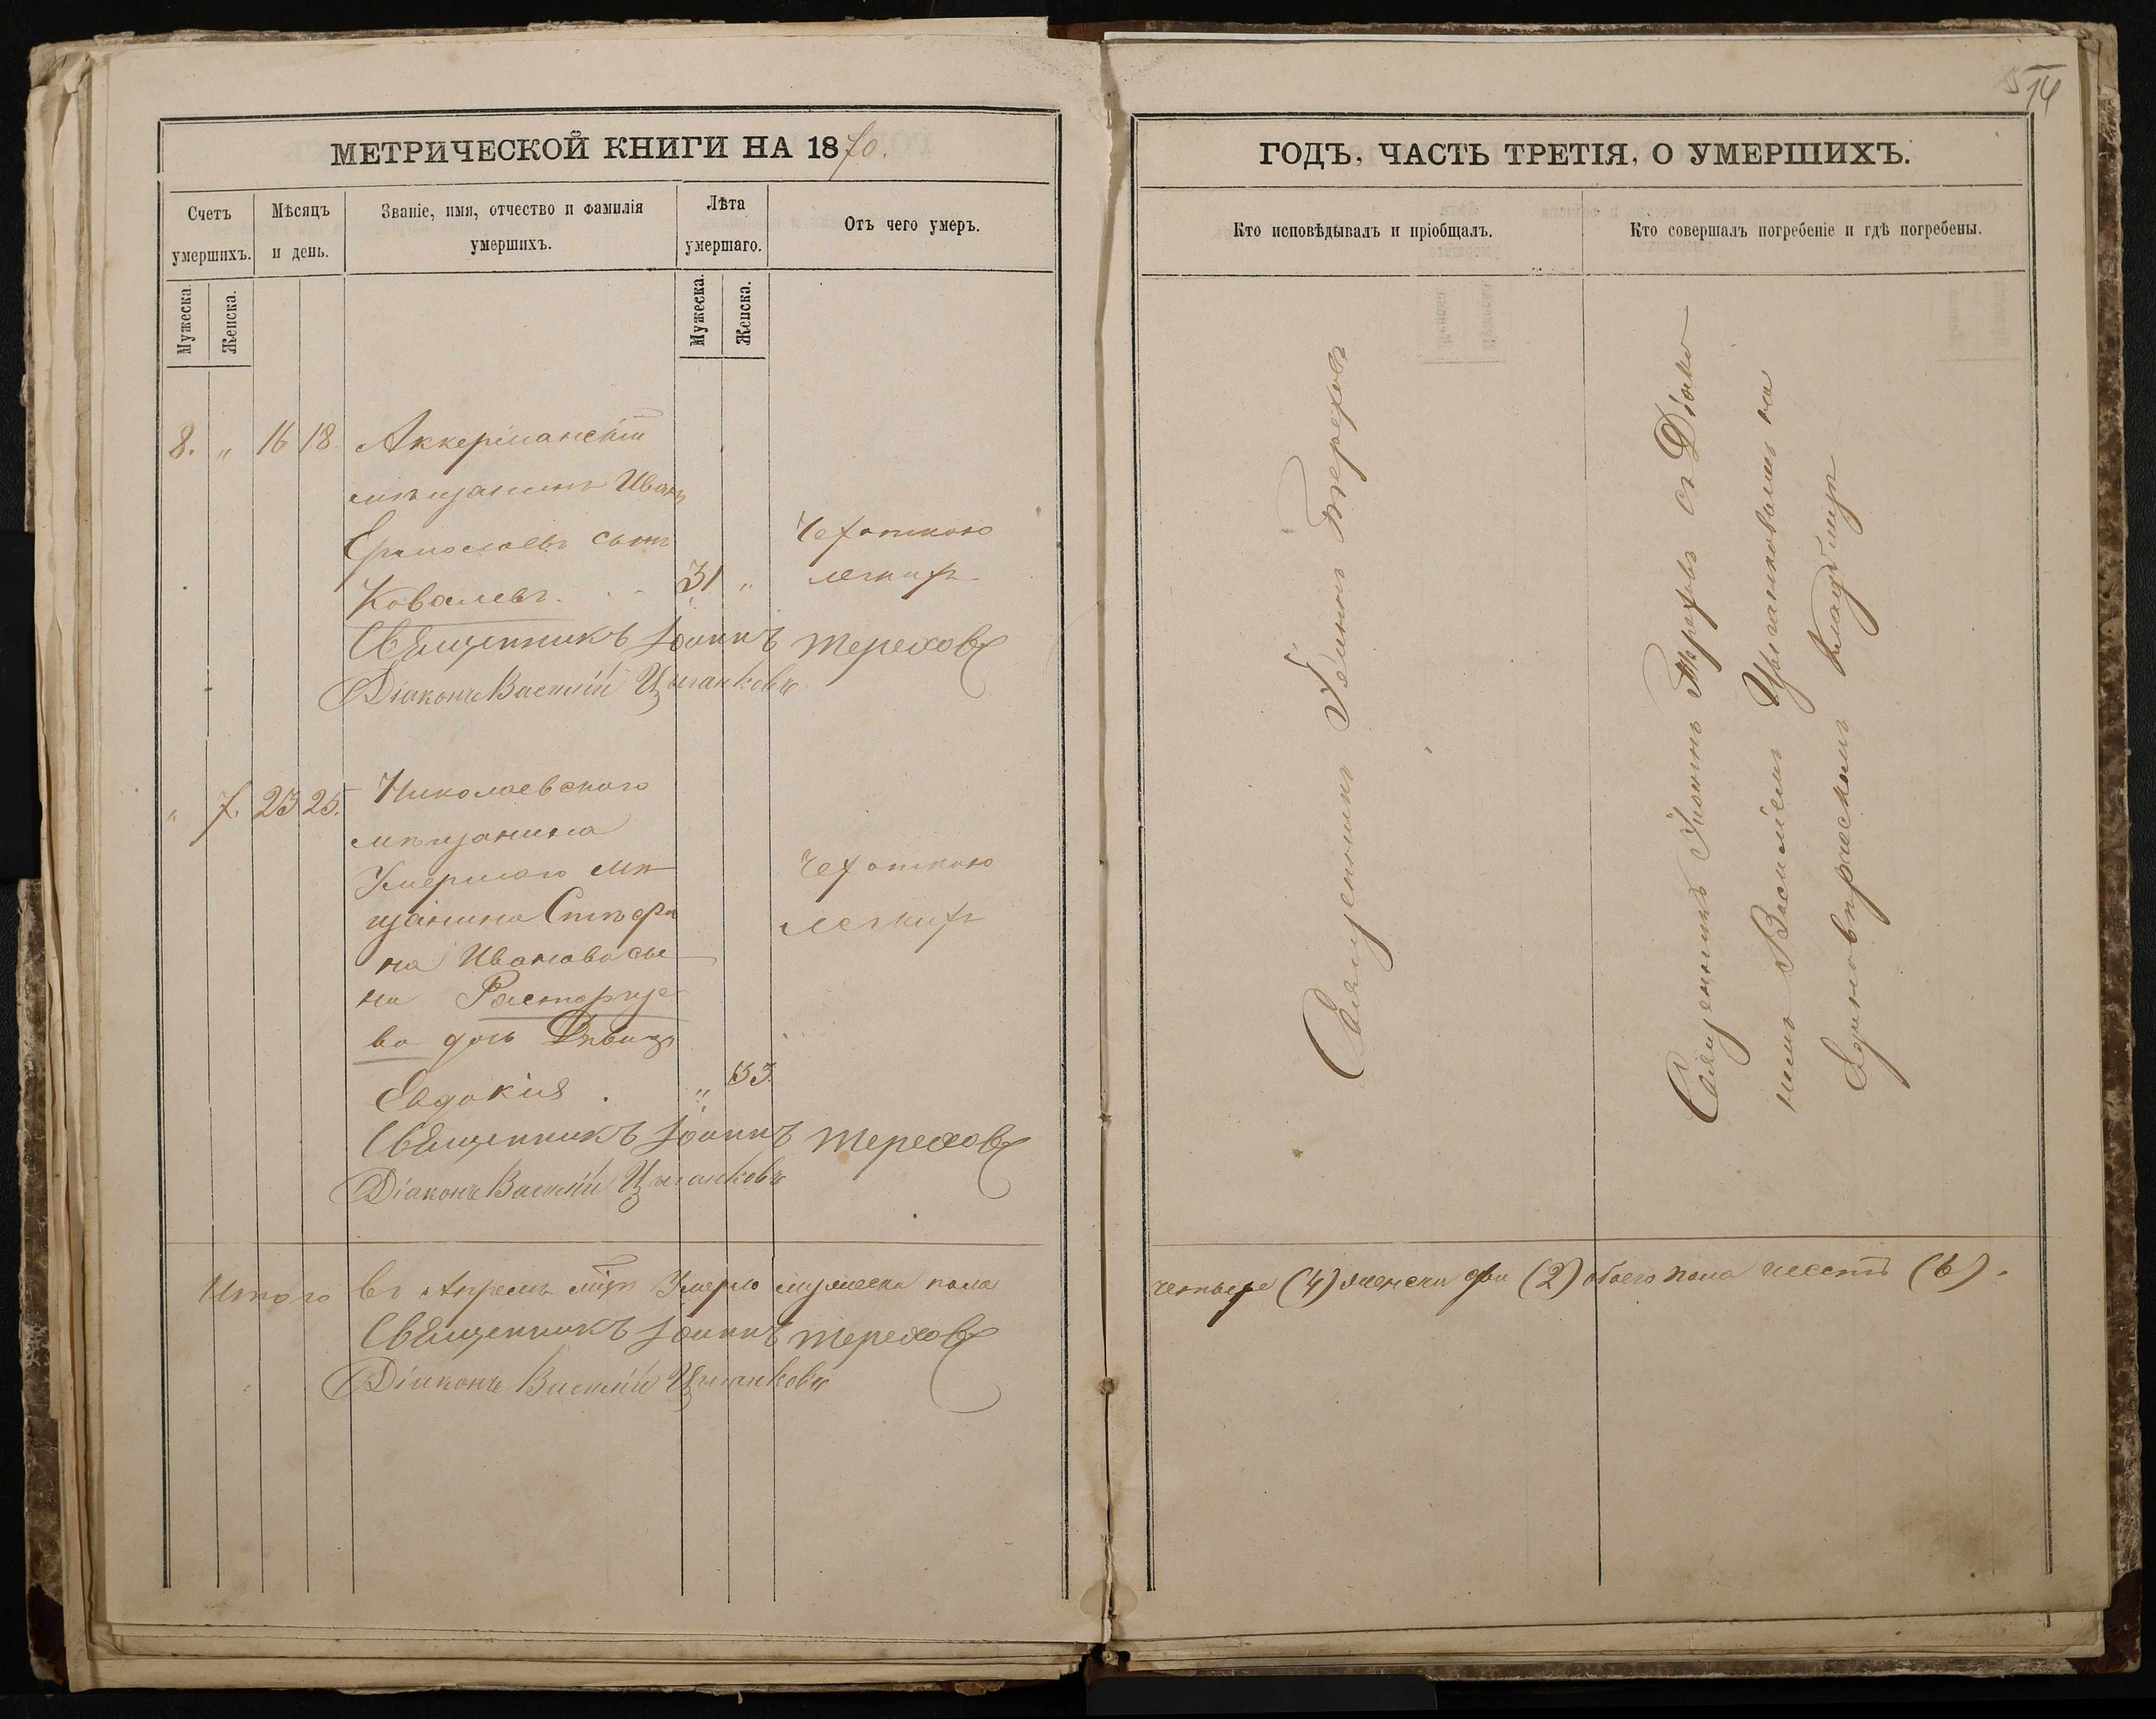 514
МЕТРИЧЕСКОЙ КНИГИ НА 1870.
Счетъ умершихъ.
Мѣсяцъ и день.
Званіе, имя, отчество и фамилія умершихъ.
Лѣта умершаго.
Отъ чего умеръ.
Мужеска.
Женска.
Мужеска.
Женска.
8. „ 16 18. Аккерманскій
мѣщанинъ Иванъ
Ермолаевъ сынъ
Ковалевъ. 31 „
Чахоткою
легкихъ
Священникъ Іоаннъ Тереховъ
Діаконъ Василій Цыганковъ
„ 7. 23 25. Николаевского
мѣщанина
Умершаго мѣ
щанина Стефа
на Иванова сы
на Расторгуе
ва дочь Дѣвица
Евдокія . „ 33.
Чахоткою
легкихъ
Священникъ Іоаннъ Тереховъ
Діаконъ Василій Цыганковъ
Итого въ Апрелѣ мцѣ Умерло мужеска пола
Священникъ Іоаннъ Тереховъ
Діаконъ Василій Цыганковъ
ГОДЪ, ЧАСТЬ ТРЕТІЯ, О УМЕРШИХЪ.
Кто исповѣдывалъ и пріобщалъ.
Кто совершалъ погребеніе и гдѣ погребены.
Священникъ Іоаннъ Тереховъ
Священникъ Іоаннъ Тереховъ съ Діако
номъ Василіемъ Цыганковымъ на
Единовѣрческомъ кладбищѣ
четыре (4) женска два (2) обоего пола шесть (6).